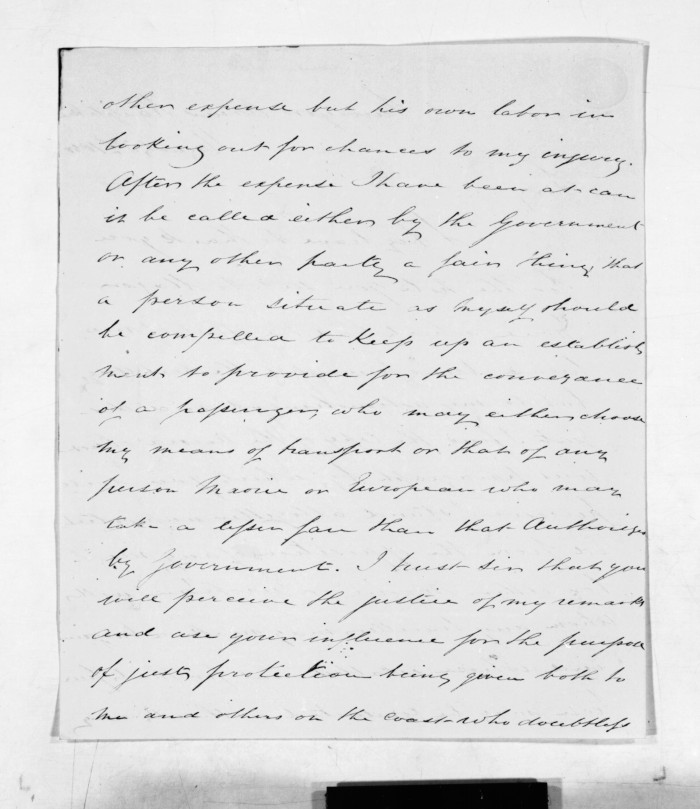 other expense but his own labor in
looking out for chances to my injury.
After the expense I have been at can
it be called either by the Government
or any other party a fair thing that
a person situate as myself should
be compelled to keep up an establish
ment to provide for the conveyance
of a passenger, who may either choose
my means of transport or that of any
person Maorie or European who may
take a lesser fare than that Authorized
by Government. I trust sir that you
will perceive the justice of my remarks
and use your influence for the purpose
of just protection being given both to
me and others on the coast who doubtless